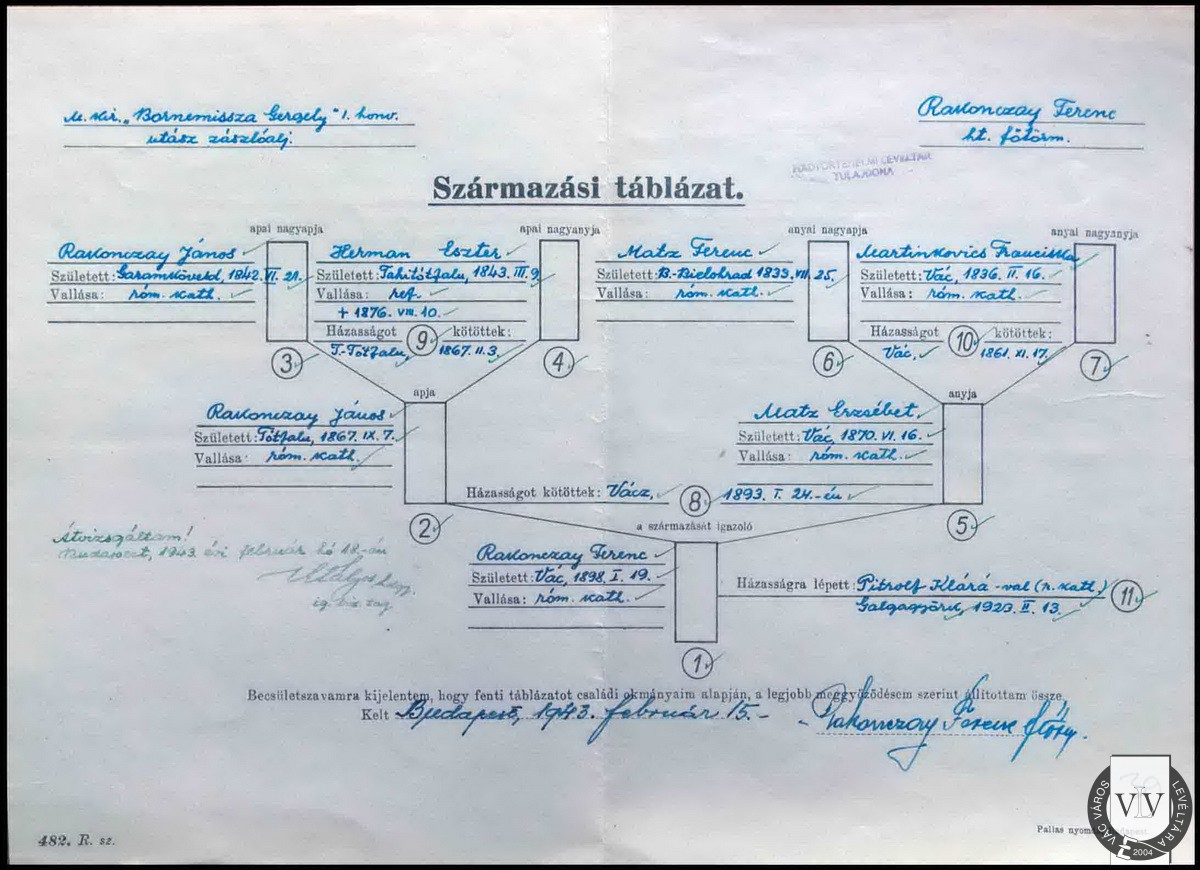 M. kir. „Bornemissza Gergely" 1. honv.
utász zászlóalj.
Rakonczay Ferenc
ht. főtörm.
HADTÖRTÉNELMI LEVÉLTÁR
TULAJDONA
Származási táblázat.
apai nagyapja
Rakonczay János
Született: Garamkövesd, 1842. VI. 21.
Vallása: róm. kath.
3
apai nagyanyja
Herman Eszter
Született: Tahitótfalu, 1843. III. 9.
Vallása: ref.
+ 1876. VIII. 10.
4
Házasságot 9 kötöttek:
T.-Tótfalu, 1867. II. 3.
anyai nagyapja
Matz Ferenc
Született: B.-Bielohrad 1833. VII. 25.
Vallása: róm. kath.
6
anyai nagyanyja
Martinkovics Franciska
Született: Vác, 1836. II. 16.
Vallása: róm. kath.
7
Házasságot 10 kötöttek:
Vác, 1861. XI. 17.
apja
Rakonczay János
Született: Tótfalu, 1867. IX. 7.
Vallása: róm. kath.
2
anyja
Matz Erzsébet
Született: Vác, 1870. VI. 16.
Vallása: róm. kath.
5
Házasságot kötöttek: Vácz, 8 1893. I. 24.-én
a származását igazoló
Rakonczay Ferenc
Született: Vác, 1898. I. 19.
Vallása: róm. kath.
1
Házasságra lépett: Pitrolf Klárá-val (r. kath.) 11
Galgagyörk, 1923. II. 13.
Átvizsgáltam!
Budapest, 1943. évi február hó 18.-án
ig. biz. tag
Becsületszavamra kijelentem, hogy fenti táblázatot családi okmányaim alapján, a legjobb meggyőződésem szerint állítottam össze.
Kelt Budapest, 1943. február 15.-
Rakonczay Ferenc ftörm.
482. R. sz.
Pallas nyomda
VÁC VÁROS LEVÉLTÁRA
VL
2004